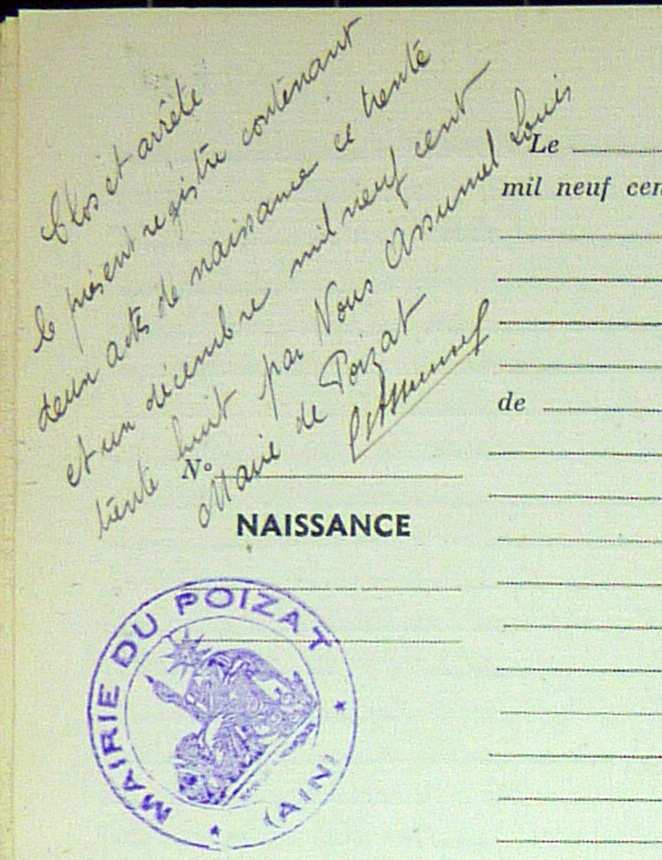 Clos et arrêté
le présent registre contenant
deux actes de naissance ce trente
et un décembre mil neuf cent
trente huit par Nous Assumel Louis
Maire de Poizat
LAssumel
N°
NAISSANCE
MAIRIE DU POIZAT
(AIN)
Le
mil neuf cen
de